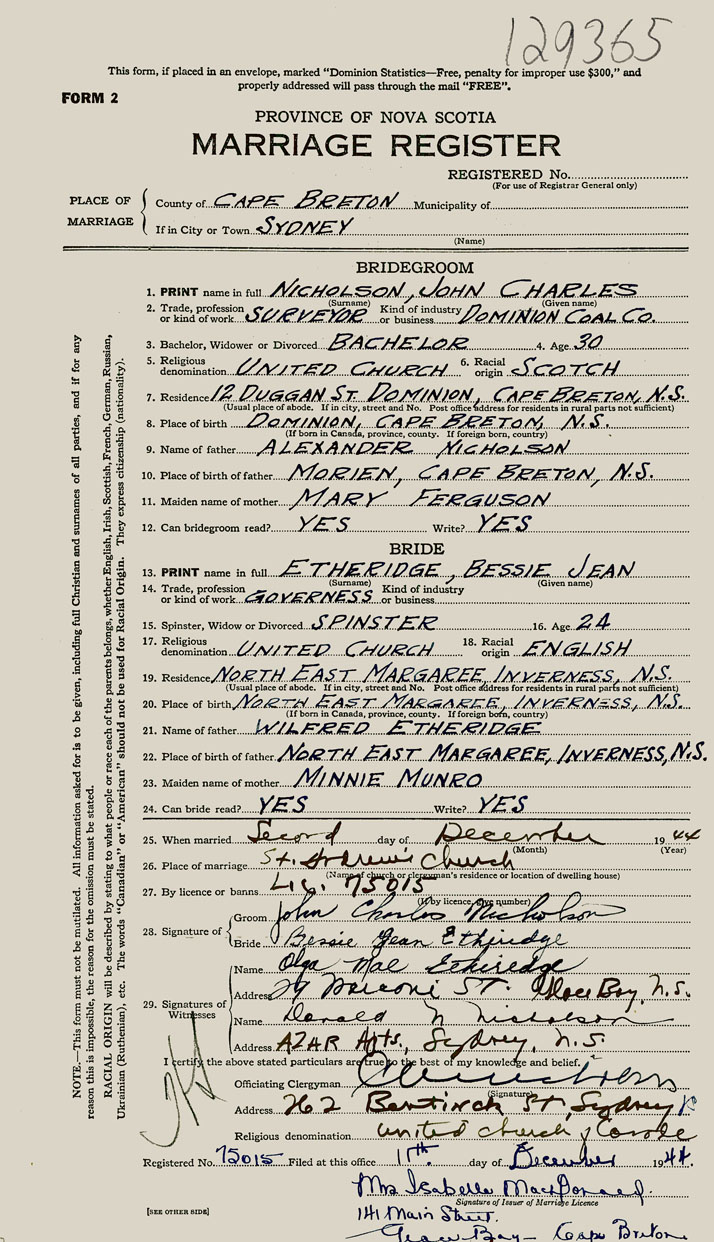 129365
This form, if placed in an envelope, marked "Dominion Statistics—Free, penalty for improper use $300," and
properly addressed will pass through the mail "FREE".
FORM 2
PROVINCE OF NOVA SCOTIA
MARRIAGE REGISTER
REGISTERED No.
(For use of Registrar General only)
PLACE OF MARRIAGE
County of CAPE BRETON Municipality of
If in City or Town SYDNEY
(Name)
BRIDEGROOM
1. PRINT name in full NICHOLSON, JOHN CHARLES
(Surname) (Given name)
2. Trade, profession or kind of work SURVEYOR Kind of industry or business DOMINION COAL CO.
3. Bachelor, Widower or Divorced BACHELOR 4. Age 30
5. Religious denomination UNITED CHURCH 6. Racial origin SCOTCH
7. Residence 12 DUGGAN ST. DOMINION, CAPE BRETON, N.S.
(Usual place of abode. If in city, street and No. Post office address for residents in rural parts not sufficient)
8. Place of birth DOMINION, CAPE BRETON, N.S.
(If born in Canada, province, county. If foreign born, country)
9. Name of father ALEXANDER NICHOLSON
10. Place of birth of father MORIEN, CAPE BRETON, N.S.
11. Maiden name of mother MARY FERGUSON
12. Can bridegroom read? YES Write? YES
BRIDE
13. PRINT name in full ETHERIDGE, BESSIE JEAN
(Surname) (Given name)
14. Trade, profession or kind of work GOVERNESS Kind of industry or business
15. Spinster, Widow or Divorced SPINSTER 16. Age 24
17. Religious denomination UNITED CHURCH 18. Racial origin ENGLISH
19. Residence NORTH EAST MARGAREE, INVERNESS, N.S.
(Usual place of abode. If in city, street and No. Post office address for residents in rural parts not sufficient)
20. Place of birth NORTH EAST MARGAREE, INVERNESS, N.S.
(If born in Canada, province, county. If foreign born, country)
21. Name of father WILFRED ETHERIDGE
22. Place of birth of father NORTH EAST MARGAREE, INVERNESS, N.S.
23. Maiden name of mother MINNIE MUNRO
24. Can bride read? YES Write? YES
25. When married Second day of December 1944
(Month) (Year)
26. Place of marriage St. Andrew's Church
(Name of church or clergyman's residence or location of dwelling house)
27. By licence or banns Lic. 75015
(If by licence, give number)
28. Signature of
Groom John Charles Nicholson
Bride Bessie Jean Etheridge
29. Signatures of Witnesses
Name Olga Mae Etheridge
Address 29 Marconi St. Glace Bay, N.S.
Name Donald N Nicholson
Address AZAR Apts., Sydney, N.S.
I certify the above stated particulars are true to the best of my knowledge and belief.
Officiating Clergyman
(Signature)
Address 262 Bentinck St, Sydney
Religious denomination United Church of Canada
Registered No. 75015 Filed at this office 11th day of December 1944.
Mrs Isabella MacDonald.
Signature of Issuer of Marriage Licence
141 Main Street.
Glace Bay - Cape Breton
[SEE OTHER SIDE]
NOTE.—This form must not be mutilated. All information asked for is to be given, including full Christian and surnames of all parties, and if for any
reason this is impossible, the reason for the omission must be stated.
RACIAL ORIGIN will be described by stating to what people or race each of the parents belongs, whether English, Irish, Scottish, French, German, Russian,
Ukrainian (Ruthenian), etc. The words "Canadian" or "American" should not be used for Racial Origin. They express citizenship (nationality).